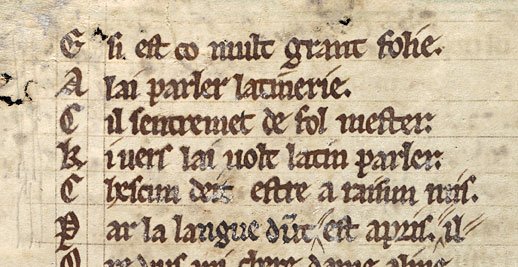 E si est co mult grant folie.
A lai parler latinerie.
C il sentremet de fol mester.
K i vers lai uolt latin parler.
C hescun deit estre a raisun mis.
P ar la langue dūt est apris.
O re chere dame aline